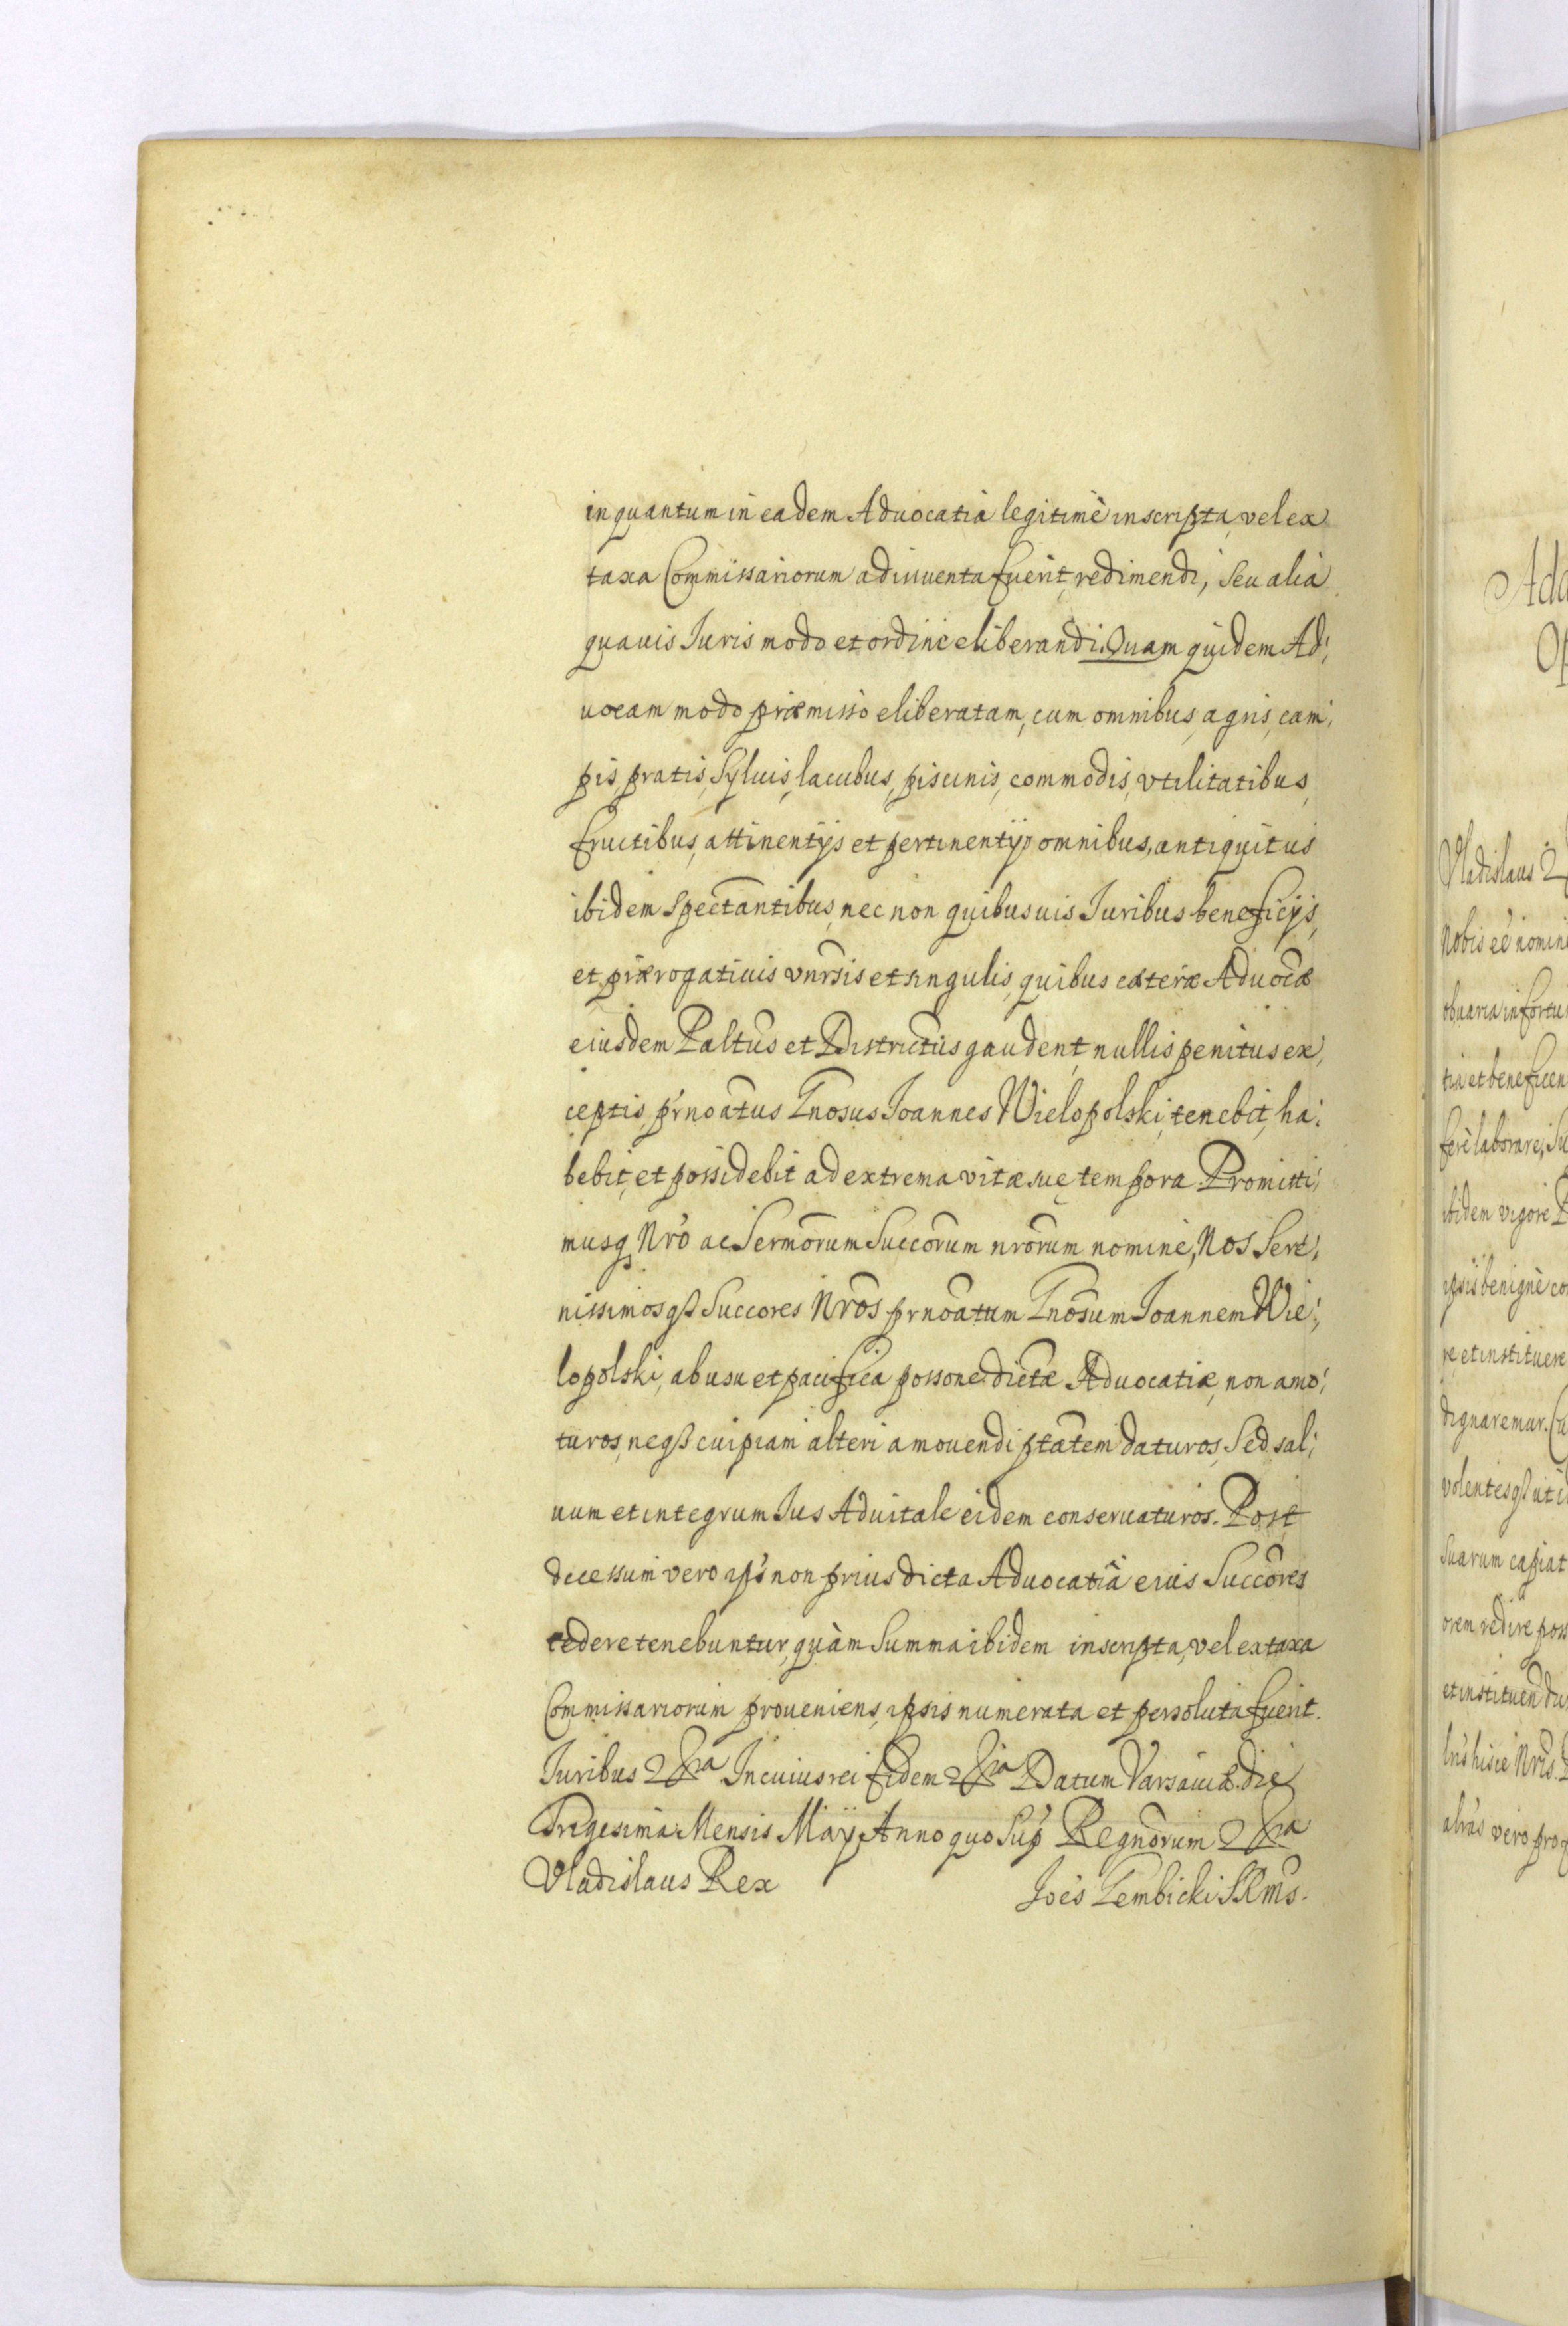 inquantum in eadem Aduocatia legitimè inscripta, vel ex
taxa Commissariorum adinuenta fuerit, redimendi, seu alia
quauis Iuris modo et ordine eliberandi. Quam quidem Ad,
uocam modo præmisso eliberatam, cum omnibus, agris, cam,
pis, pratis, Syluis, lacubus, piscinis, commodis, vtilitatibus,
fructibus, attinentijs et pertinentijs omnibus, antiquitus
ibidem spectantibus, nec non quibusuis Iuribus beneficijs,
et prærogatiuis vnrsis et singulis, quibus cæteræ Aduocæ
eiusdem Paltus et Districtus gaudent, nullis penitus ex,
ceptis, prnoatus Gnosus Joannes Wielopolski, tenebit, ha,
bebit, et possidebit ad extrema vitæ suę tempora. Promitti,
musq Nro ac Sermorum Succorum nrorum nomine, Nos Sere,
nissimosqß Succores Nros prnoatum Gnosum Joannem Wie,
lopolski, ab usu et pacifica possone dictæ Aduocatiæ, non amo,
turos, neqß cuipiam alteri amouendi ptatem daturos, Sed sal,
uum et integrum Ius Aduitale eidem conseruaturos. Post
decessum vero ips non prius dicta Aduocatiâ eius Succores
cedere tenebuntur, quàm Summa ibidem inscripta, vel ex taxa
Commissariorum proueniens, ipsis numerata et persoluta fuerit.
Iuribus In cuius rei fidem Datum Varsauiæ die
Trigesima Mensis Maÿ Anno quo Sup Regnorum
Vladislaus Rex Joes Gembicki SRMs.

Vladislaus
Nobis eê nomin
obuaria infortu
tia et beneficen
ferè laborare, Su
ibidem vigore P
ipsis benignè co
re et instituere
dignaremur. Cu
volentesqß uti
suarum capiat
orem redire poss
et instituendu
hisce Nris
aliàs vero proq